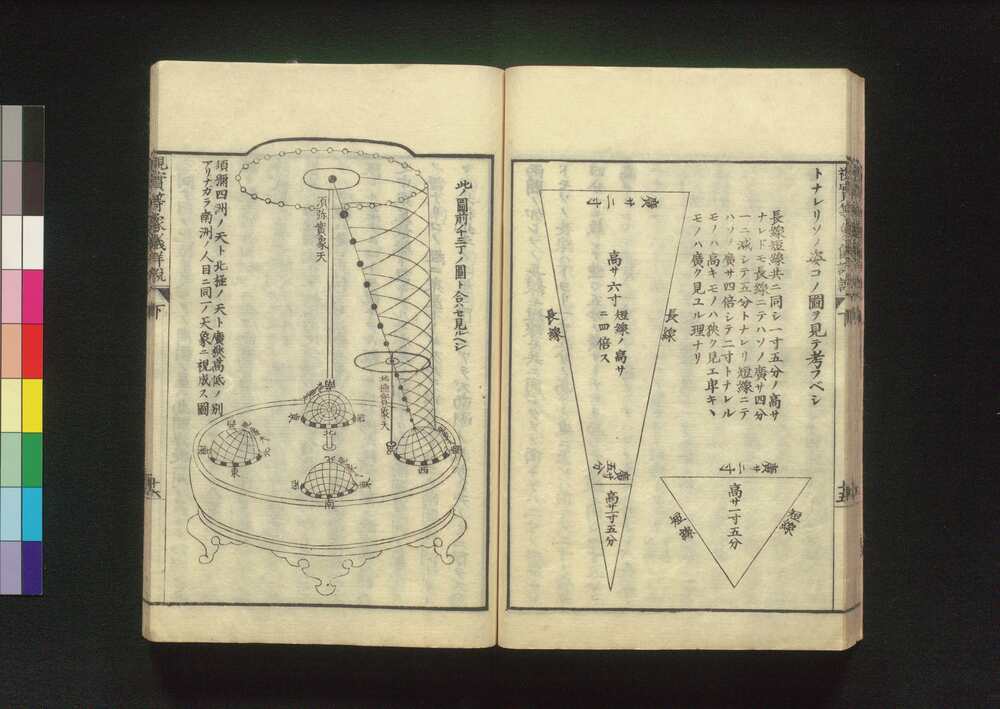 トナレリソノ姿コノ圖ヲ見テ考フベシ
長線短線共ニ同シ一寸五分ノ高サ
ナレドモ長線ニテハソノ廣サ四分
一ニ減シテ五分トナレリ短線ニテ
ハソノ廣サ四倍シテ二寸トナレル
モノハ高キモノハ狹ク見エ卑キ
モノハ廣ク見ユル理ナリ
廣サ二寸
高サ六寸
短線ノ高サ
ニ四倍ス
長線
長線
廣サ五分
高サ一寸五分
廣サ二寸
高サ一寸五分
短線
短線
十五
此ノ圖前ノ十三丁ノ圖ト合ハセ見ルヘシ
須弥實象天
北
南
西
東
南
須彌四洲ノ天ト北極ノ天ト廣狹高低ノ別
アリナカラ南洲ノ人目ニ同一ノ天象ニ視成ス圖
視實等象儀詳説
下